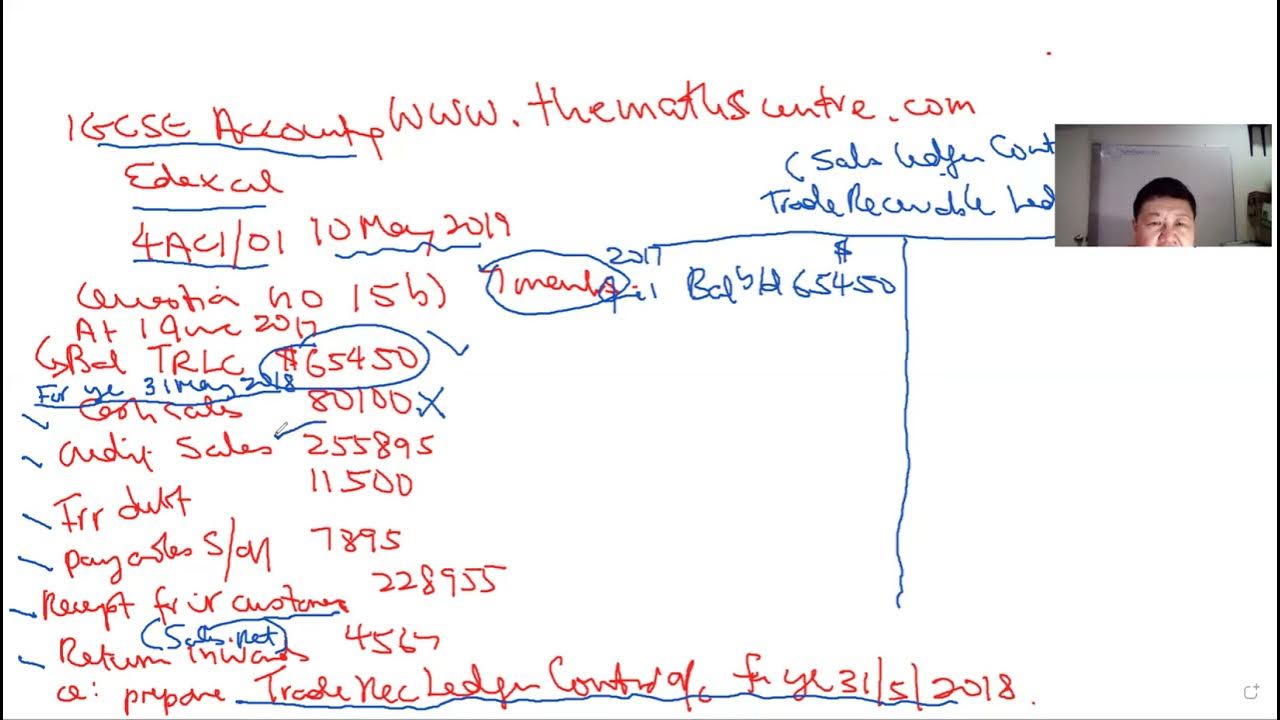 IGCSE Accounting www.themathscentre.com
Edexcel
4AC1/01 10 May 2019
Question no 15b) 7 marks
At 1 June 2017
Bal TRLC $65450
For ye 31 May 2018
Cash sales 80100 X
Credit Sales 255895
Irr debt 11500
payables S/off 7895
Receipt fr cr customer 228955
(Sales ret)
Return Inwards 4567
a: prepare Trade Rec Ledger Control a/c for ye 31/5/2018.
(Sales Ledger Cont
Trade Receivable Led
2017 $
Bal b/d 65450